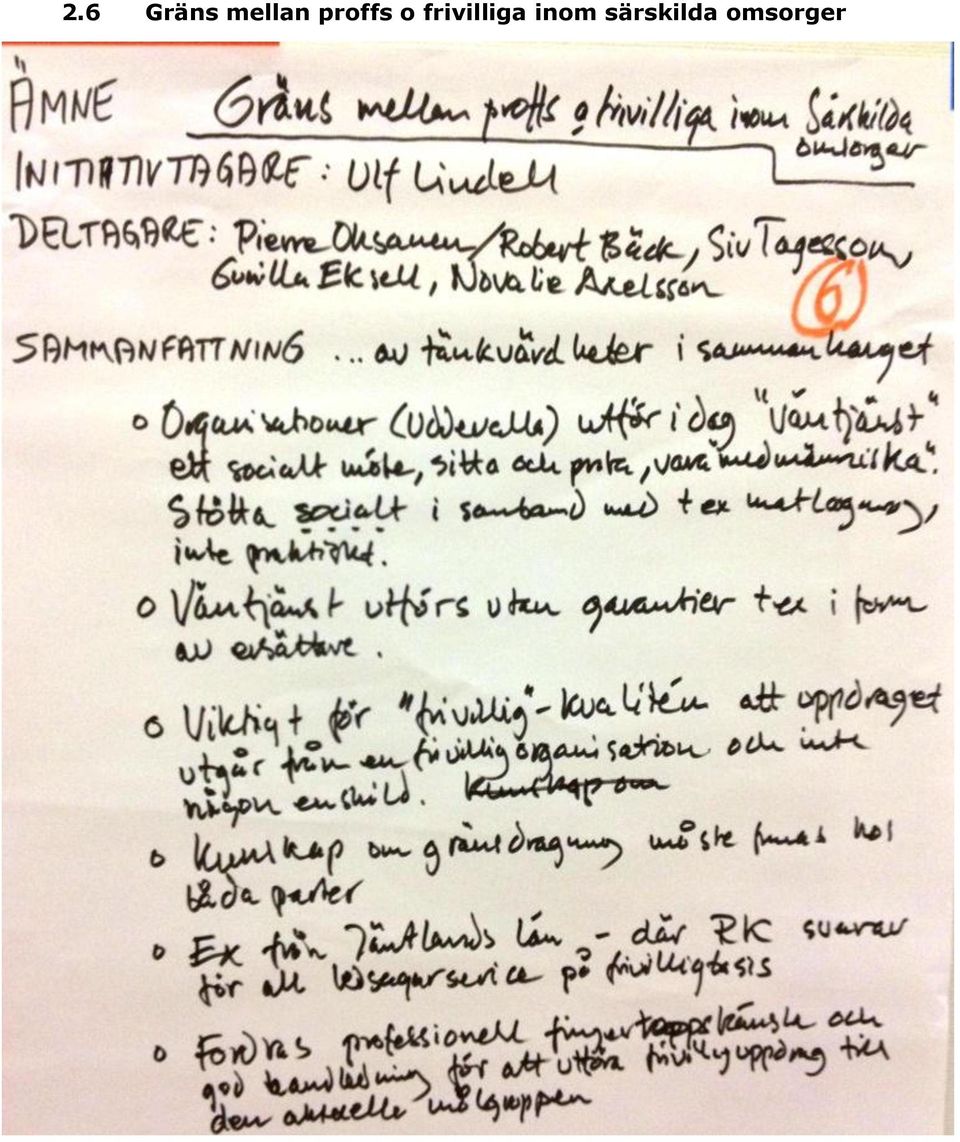 2.6 Gräns mellan proffs o frivilliga inom särskilda omsorger
ÄMNE Gräns mellan proffs o frivilliga inom Särskilda
omsorger
INITIATIVTAGARE: Ulf Lindell
DELTAGARE: Pierre Oksanen/Robert Bäck, Siv Tagesson,
Gunilla Eksell, Novalie Axelsson
6
SAMMANFATTNING ... av tänkvärdheter i sammanhanget
o Organisationer (Uddevalla) utför i dag "Väntjänst"
ett socialt möte, sitta och prata, vara "medmänniska".
Stötta socialt i samband med t ex matlagning,
inte praktiskt.
o Väntjänst utförs utan garantier t ex i form
av ersättare.
o Viktigt för "frivillig"-kvalitén att uppdraget
utgår från en frivillig organisation och inte
någon enskild. Kunskap om
o Kunskap om gränsdragning måste finnas hos
båda parter
o Ex från Jämtlands län - där RK svarar
för all ledsagarservice på frivilligbasis
o Fordras professionell fingertoppskänsla och
god handledning för att utföra frivilliguppdrag till
den aktuella målgruppen